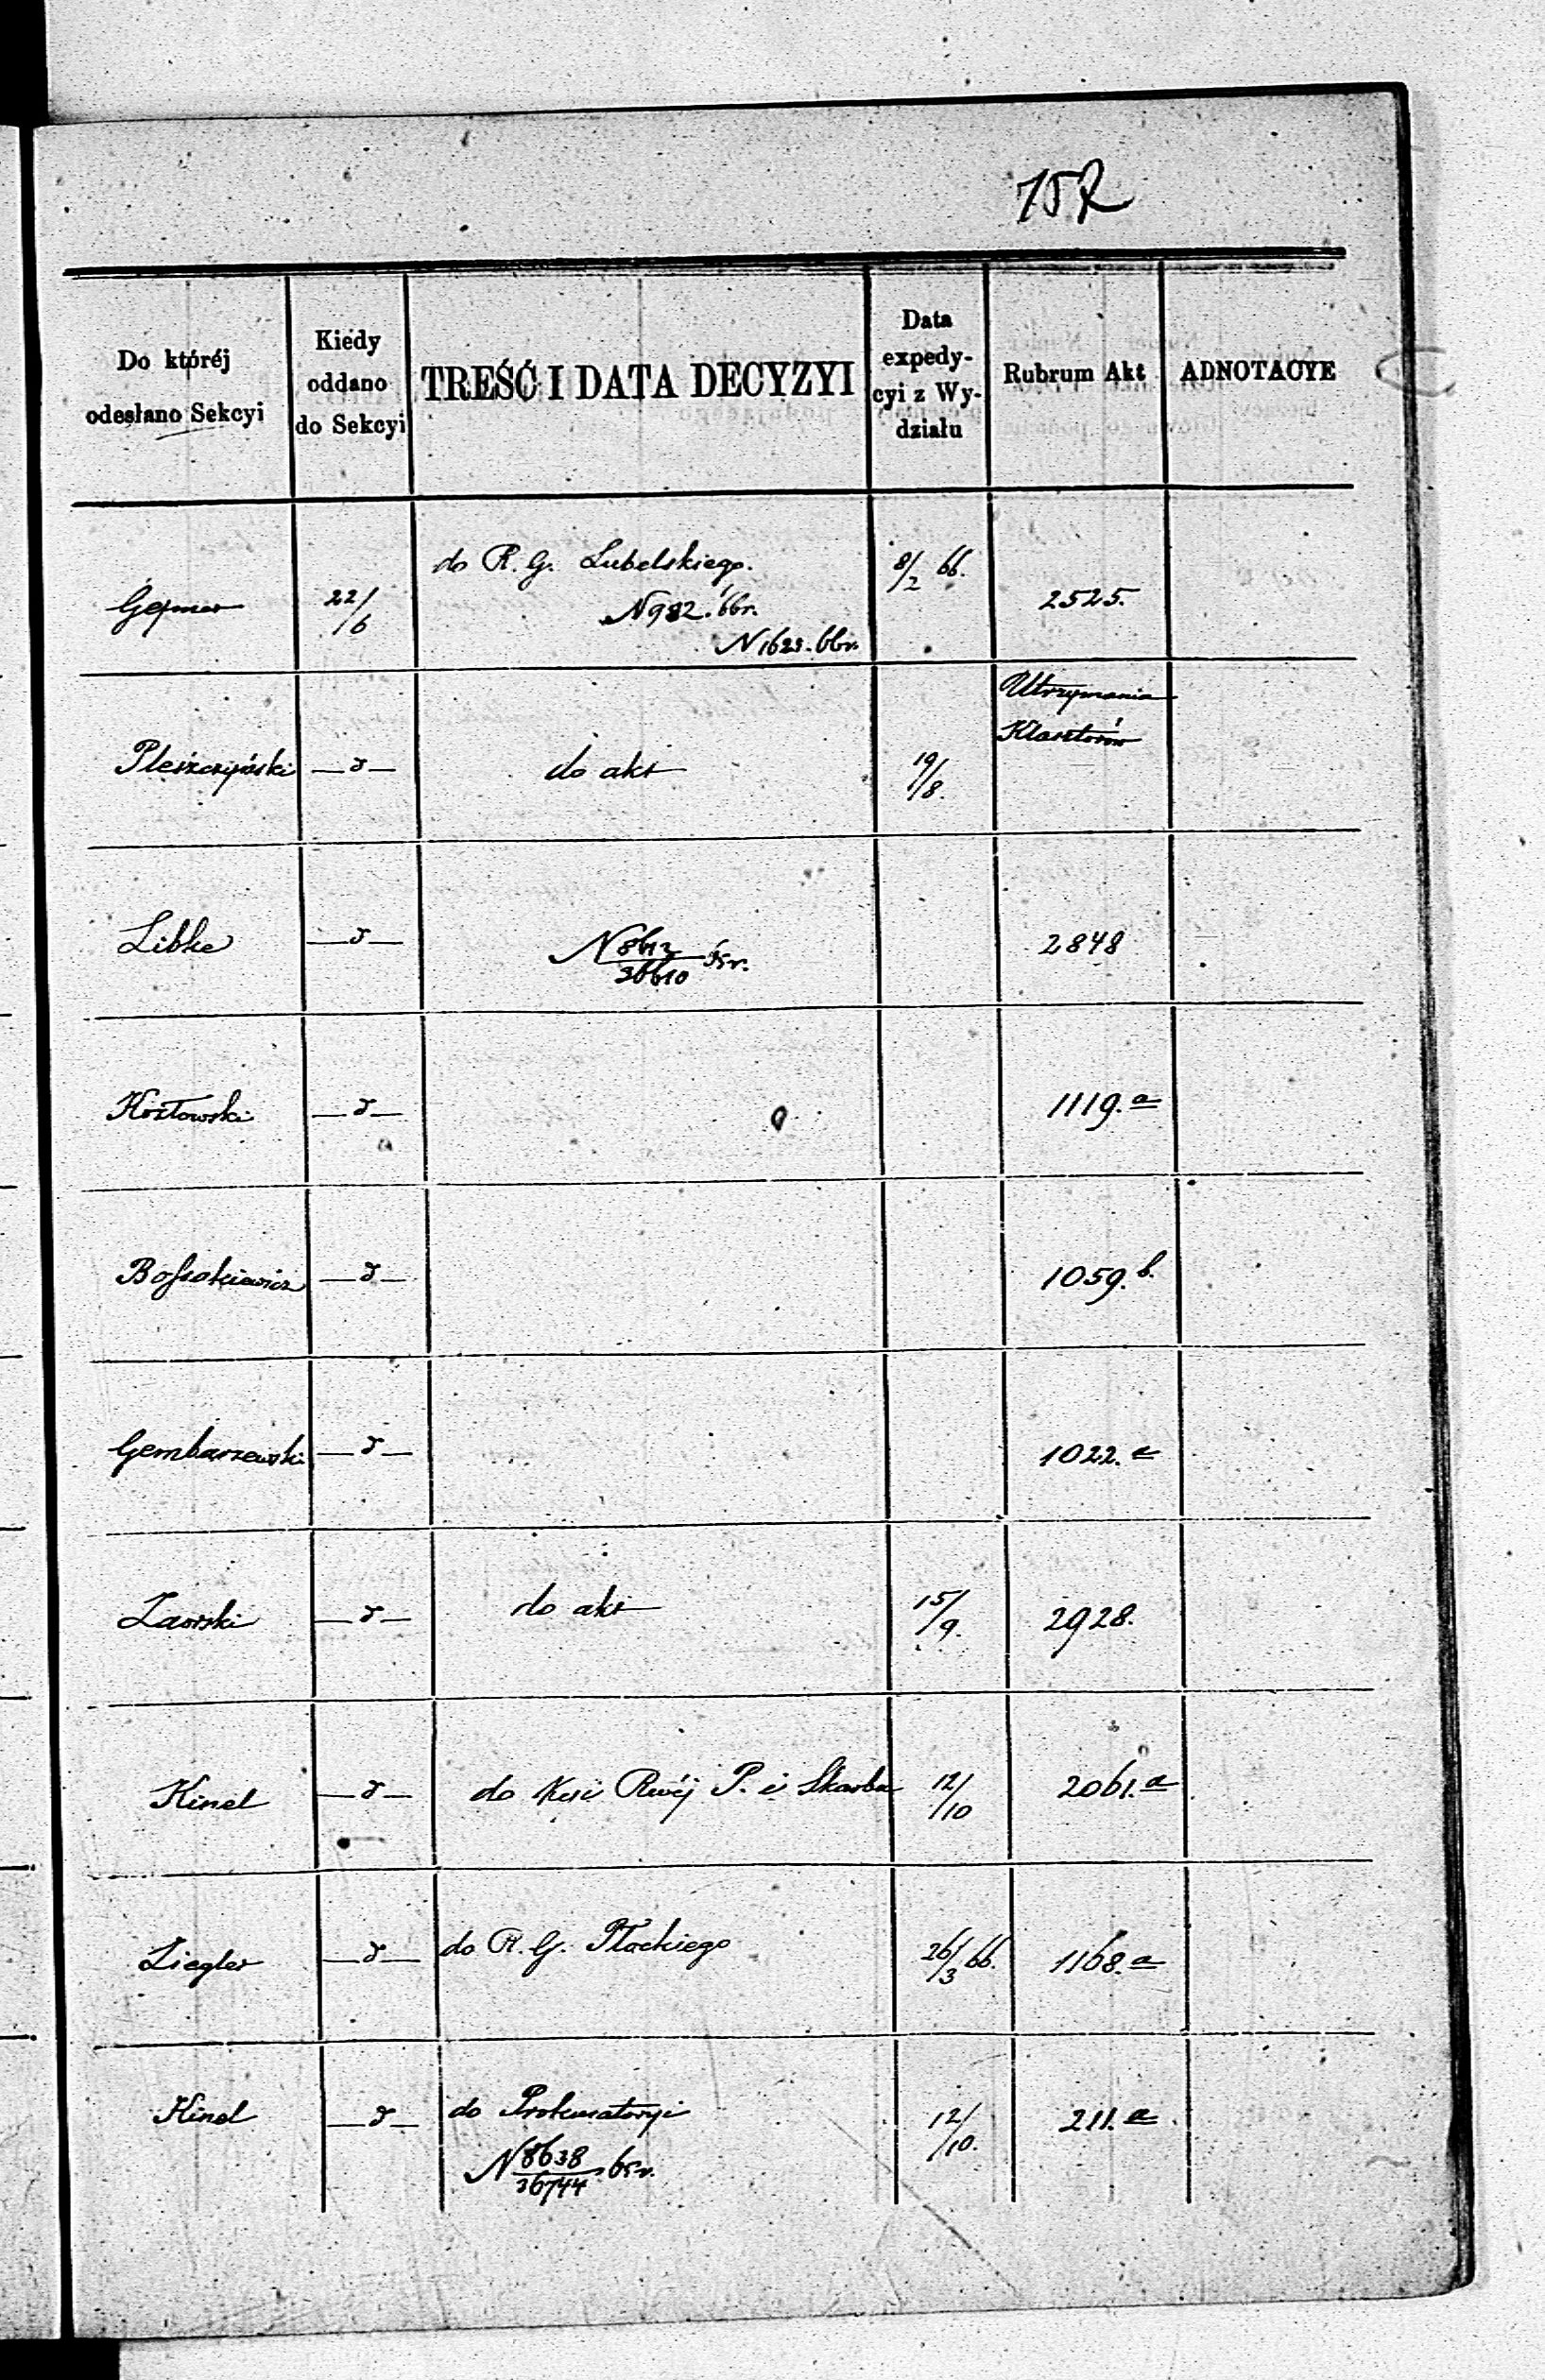 152
Do któréj odesłano Sekcyi
Kiedy oddano do Sekcyi
TREŚĆ I DATA DECYZYI
Data expedycyi z Wydziału
Rubrum Akt
ADNOTACYE
22/6 do R. G. Lubelskiego. 8/2 66. 2525.
N 982. 66r.
N 1623. 66r.
Utrzymania
Klasztorów
Pleszczyński —d— do akt 19/8.
Libke —d— N 8612/36610 65r. 2848
Kozłowski —d— 1119.a
Bossakiewicz —d— 1059.b.
Gembarzewski —d— 1022.a
Zaorski —d— do akt 15/9. 2928.
Kinel —d— do Kısii Rwéj P. i Skarbu 12/10 2061.a
Ziegler —d— do R. G. Płockiego 26/3 66. 1168.a
Kinel —d— do Prokuratoryi 12/10. 211.a
N 8638/36744 65r.